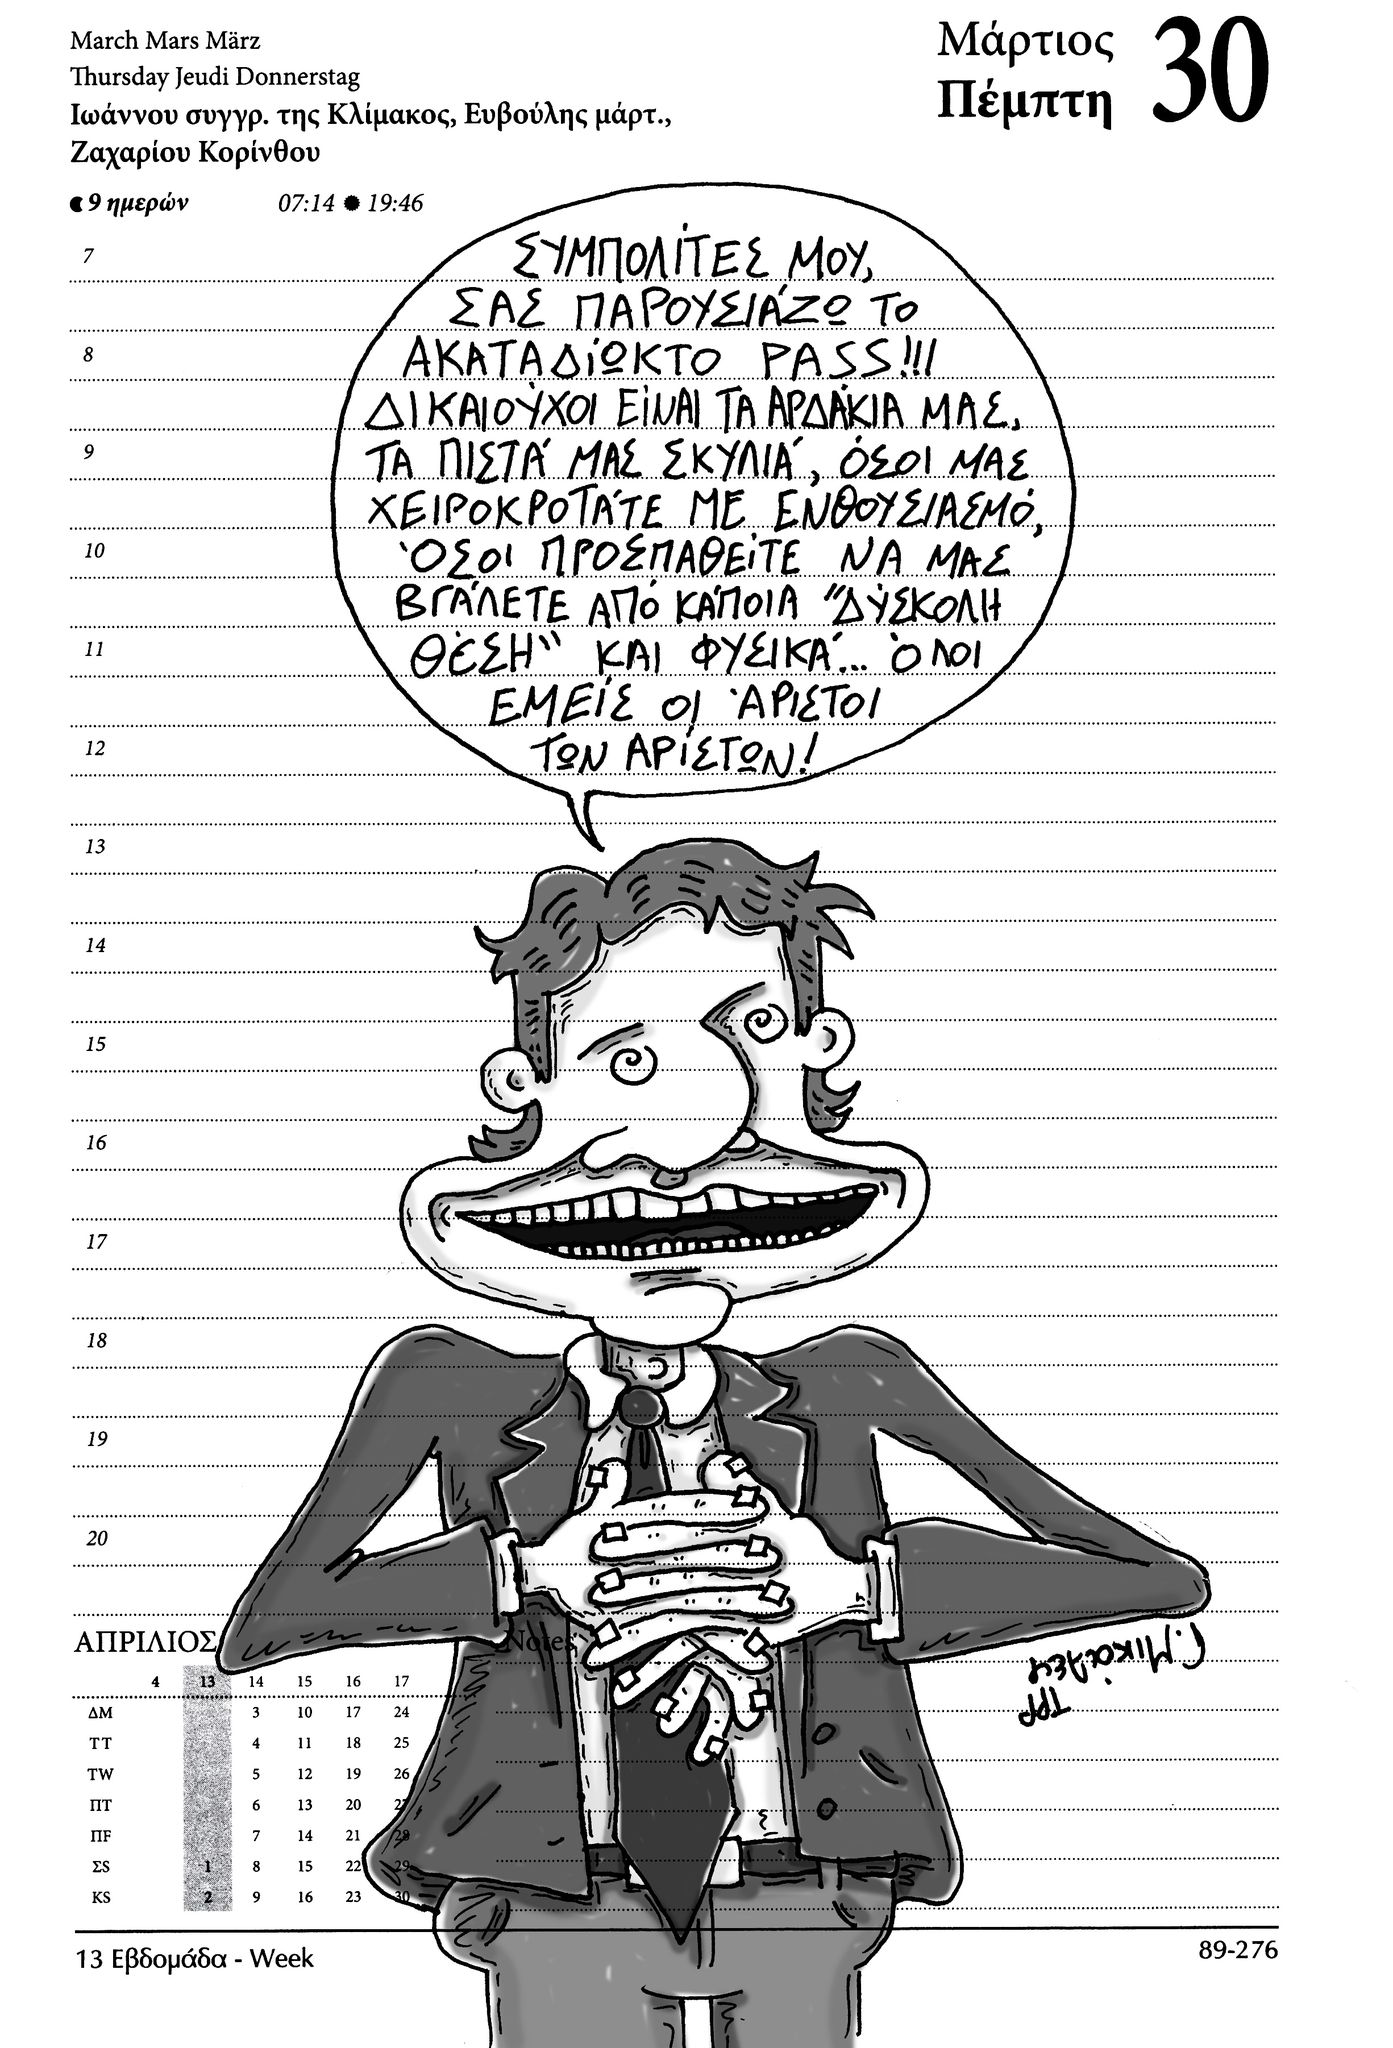 March Mars März
Thursday Jeudi Donnerstag
Ιωάννου συγγρ. της Κλίμακος, Ευβούλης μάρτ.,
Ζαχαρίου Κορίνθου
Μάρτιος
Πέμπτη
30
9 ημερών 07:14 19:46
ΣΥΜΠΟΛΊΤΕΣ ΜΟΥ,
ΣΑΣ ΠΑΡΟΥΣΙΆΖΩ ΤΟ
ΑΚΑΤΑΔΊΩΚΤΟ PASS!!!
ΔΙΚΑΙΟΎΧΟΙ ΕΊΝΑΙ ΤΑ ΑΡΔΆΚΙΑ ΜΑΣ,
ΤΑ ΠΙΣΤΆ ΜΑΣ ΣΚΥΛΙΆ, ΌΣΟΙ ΜΑΣ
ΧΕΙΡΟΚΡΟΤΆΤΕ ΜΕ ΕΝΘΟΥΣΙΑΣΜΌ,
ΌΣΟΙ ΠΡΟΣΠΑΘΕΊΤΕ ΝΑ ΜΑΣ
ΒΓΆΛΕΤΕ ΑΠΌ ΚΆΠΟΙΑ "ΔΎΣΚΟΛΗ
ΘΈΣΗ" ΚΑΙ ΦΥΣΙΚΆ... ΌΛΟΙ
ΕΜΕΊΣ ΟΙ ΆΡΙΣΤΟΙ
ΤΩΝ ΑΡΊΣΤΩΝ!
7
8
9
10
11
12
13
14
15
16
17
18
19
20
ΑΠΡΙΛΙΟΣ
Notes
4 13 14 15 16 17
ΔΜ 3 10 17 24
ΤΤ 4 11 18 25
ΤW 5 12 19 26
ΠΤ 6 13 20 27
ΠF 7 14 21 28
ΣS 1 8 15 22 29
ΚS 2 9 16 23 30
13 Εβδομάδα - Week
89-276